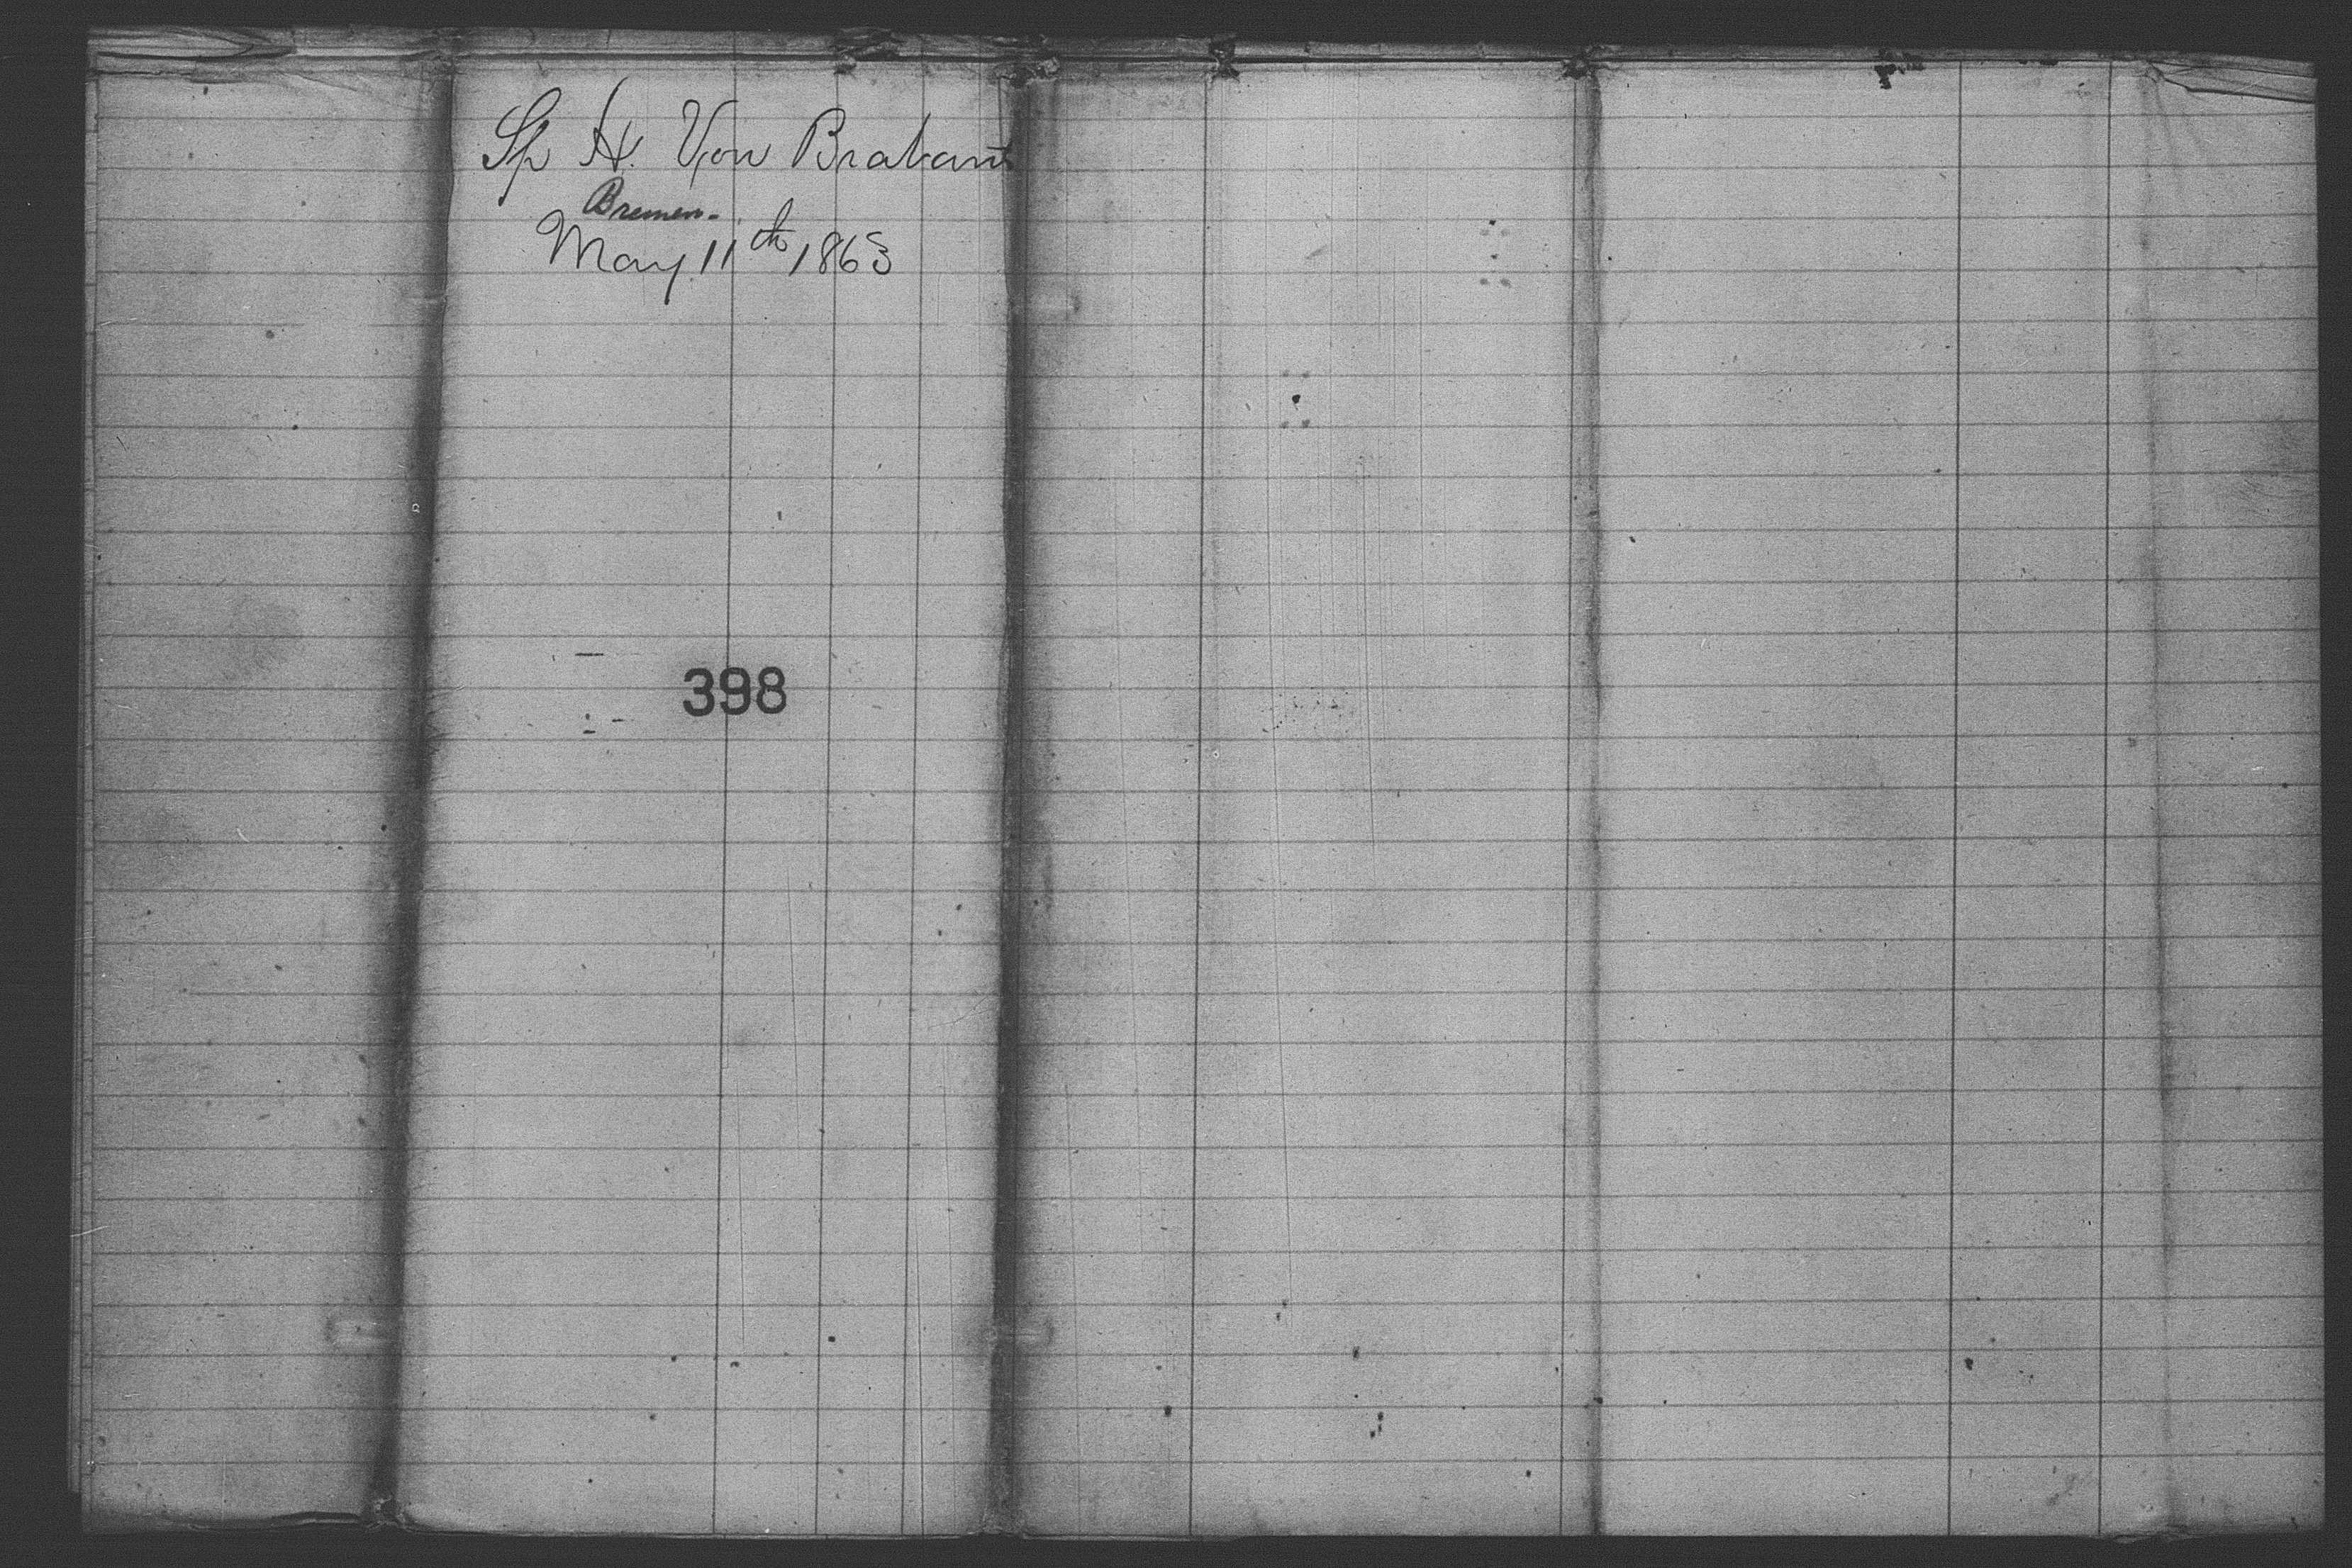 Sp H. Von Brabant
Bremen.
May 11th 1863
398